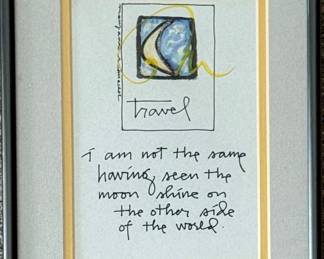 travel
I am not the same
having seen the
moon shine on
the other side
of the world.